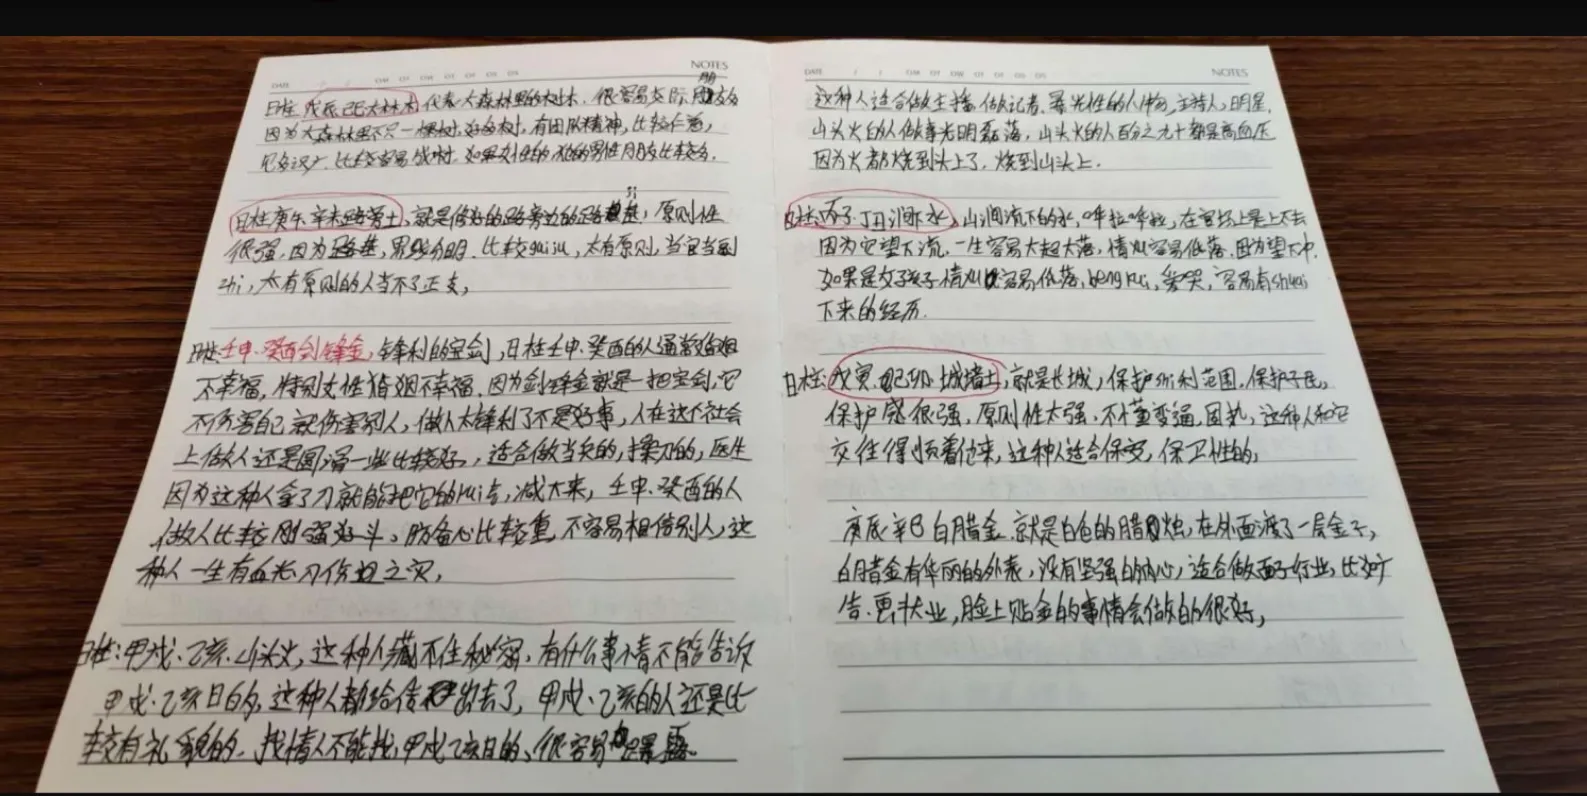 DATE / / NOTES
日柱戊辰己巳大林木 代表大森林里的树木，很容易交际朋友
因为大森林里不只一棵树，好多树，有团队精神，比较仁慈，
见多识广，比较容易成材，如果女性的他的男性朋友比较多，
日柱庚午辛未路旁土，就是修好的路旁边的路基，原则性
很强，因为路基，界线分明，比较guiju，太有原则，当官当到
zhi，太有原则的人当不了正支，
日柱：壬申、癸酉剑锋金，锋利的宝剑，日柱壬申、癸酉的人通常婚姻
不幸福，特别女性婚姻不幸福，因为剑锋金就是一把宝剑，它
不伤害自己就伤害别人，做人太锋利了不是好事，人在这个社会
上做人还是圆滑一些比较好，适合做当兵的，操刀的，医生
因为这种人拿了刀就能把它的rui去，减大来，壬申、癸酉的人
做人比较刚强好斗，防备心比较重，不容易相信别人，这
种人一生有血光刀伤之灾，
日柱：甲戌、乙亥、山头火，这种人藏不住秘密，有什么事情不能告诉
甲戌、乙亥日的，这种人都给传出去了，甲戌、乙亥的人还是比
较有礼貌的、找情人不能找，甲戌乙亥日的、很容易暴露。
DATE / / NOTES
这种人适合做主播，做记者、曝光性的人物，主持人，明星，
山头火的人做事光明磊落，山头火的人百分之九十都是高血压
因为火都烧到头上了，烧到山头上．
日柱：丙子、丁丑涧下水，山涧流下的水，哗啦哗啦，在官场上是上不去
因为它望下流，一生容易大起大落，情绪容易低落，因为望下冲，
如果是女孩子情绪容易低落，beng kui，爱哭，容易有shuai
下来的经历．
日柱：戊寅、己卯、城墙土，就是长城，保护所利范围，保护子民，
保护感很强，原则性太强，不懂变通，固执，这种人和它
交往得顺着他来，这种人适合保安，保卫性的，
庚辰辛巳白腊金，就是白色的腊烛，在外面渡了一层金子，
白腊金有华丽的外表，没有坚强的内心，适合做面子行业，比如广
告、美状业，脸上贴金的事情会做的很好，